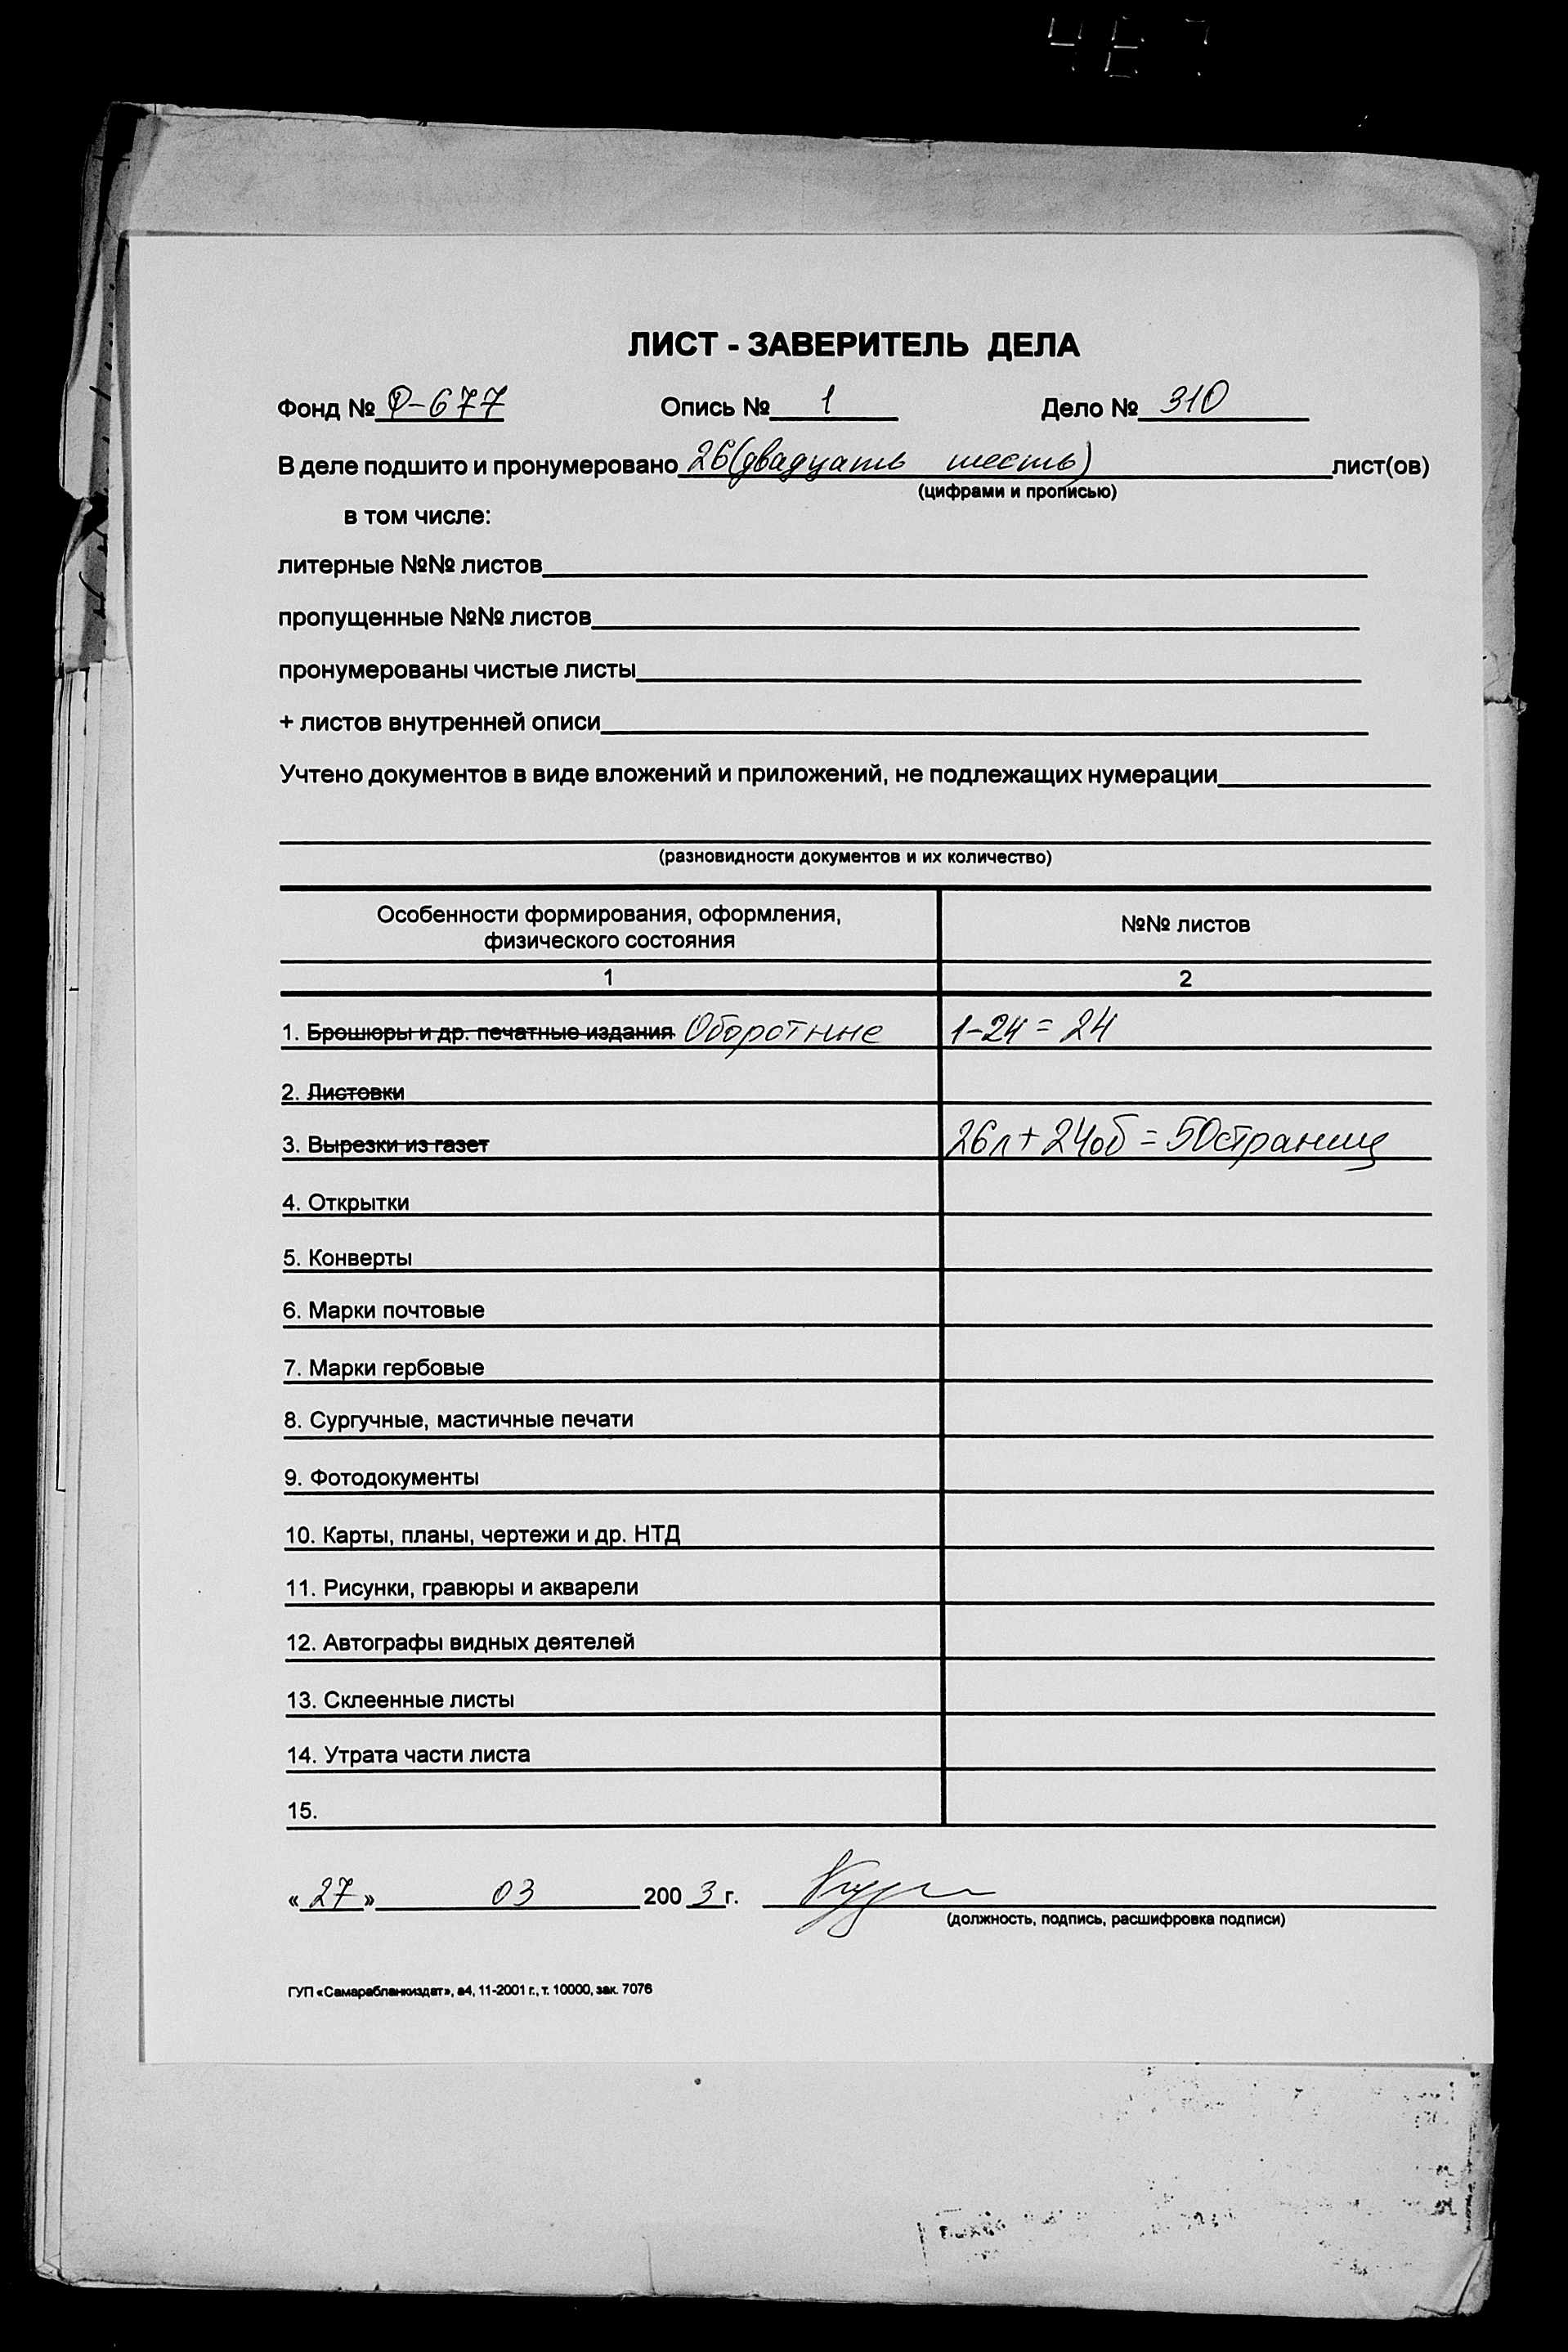 ЛИСТ - ЗАВЕРИТЕЛЬ ДЕЛА
Фонд № Р-677 Опись № 1 Дело № 310
В деле подшито и пронумеровано 26 (двадцать шесть) лист(ов)
(цифрами и прописью)
в том числе:
литерные №№ листов
пропущенные №№ листов
пронумерованы чистые листы
+ листов внутренней описи
Учтено документов в виде вложений и приложений, не подлежащих нумерации
(разновидности документов и их количество)
Особенности формирования, оформления, №№ листов
физического состояния
1 2
1. Брошюры и др. печатные издания Оборотные 1-24 = 24
2. Листовки
3. Вырезки из газет 26л + 24об = 50страниц
4. Открытки
5. Конверты
6. Марки почтовые
7. Марки гербовые
8. Сургучные, мастичные печати
9. Фотодокументы
10. Карты, планы, чертежи и др. НТД
11. Рисунки, гравюры и акварели
12. Автографы видных деятелей
13. Склеенные листы
14. Утрата части листа
15.
«27» 03 2003г.
(должность, подпись, расшифровка подписи)
ГУП «Самарабланкиздат», а4, 11-2001 г., т. 10000, зак. 7076